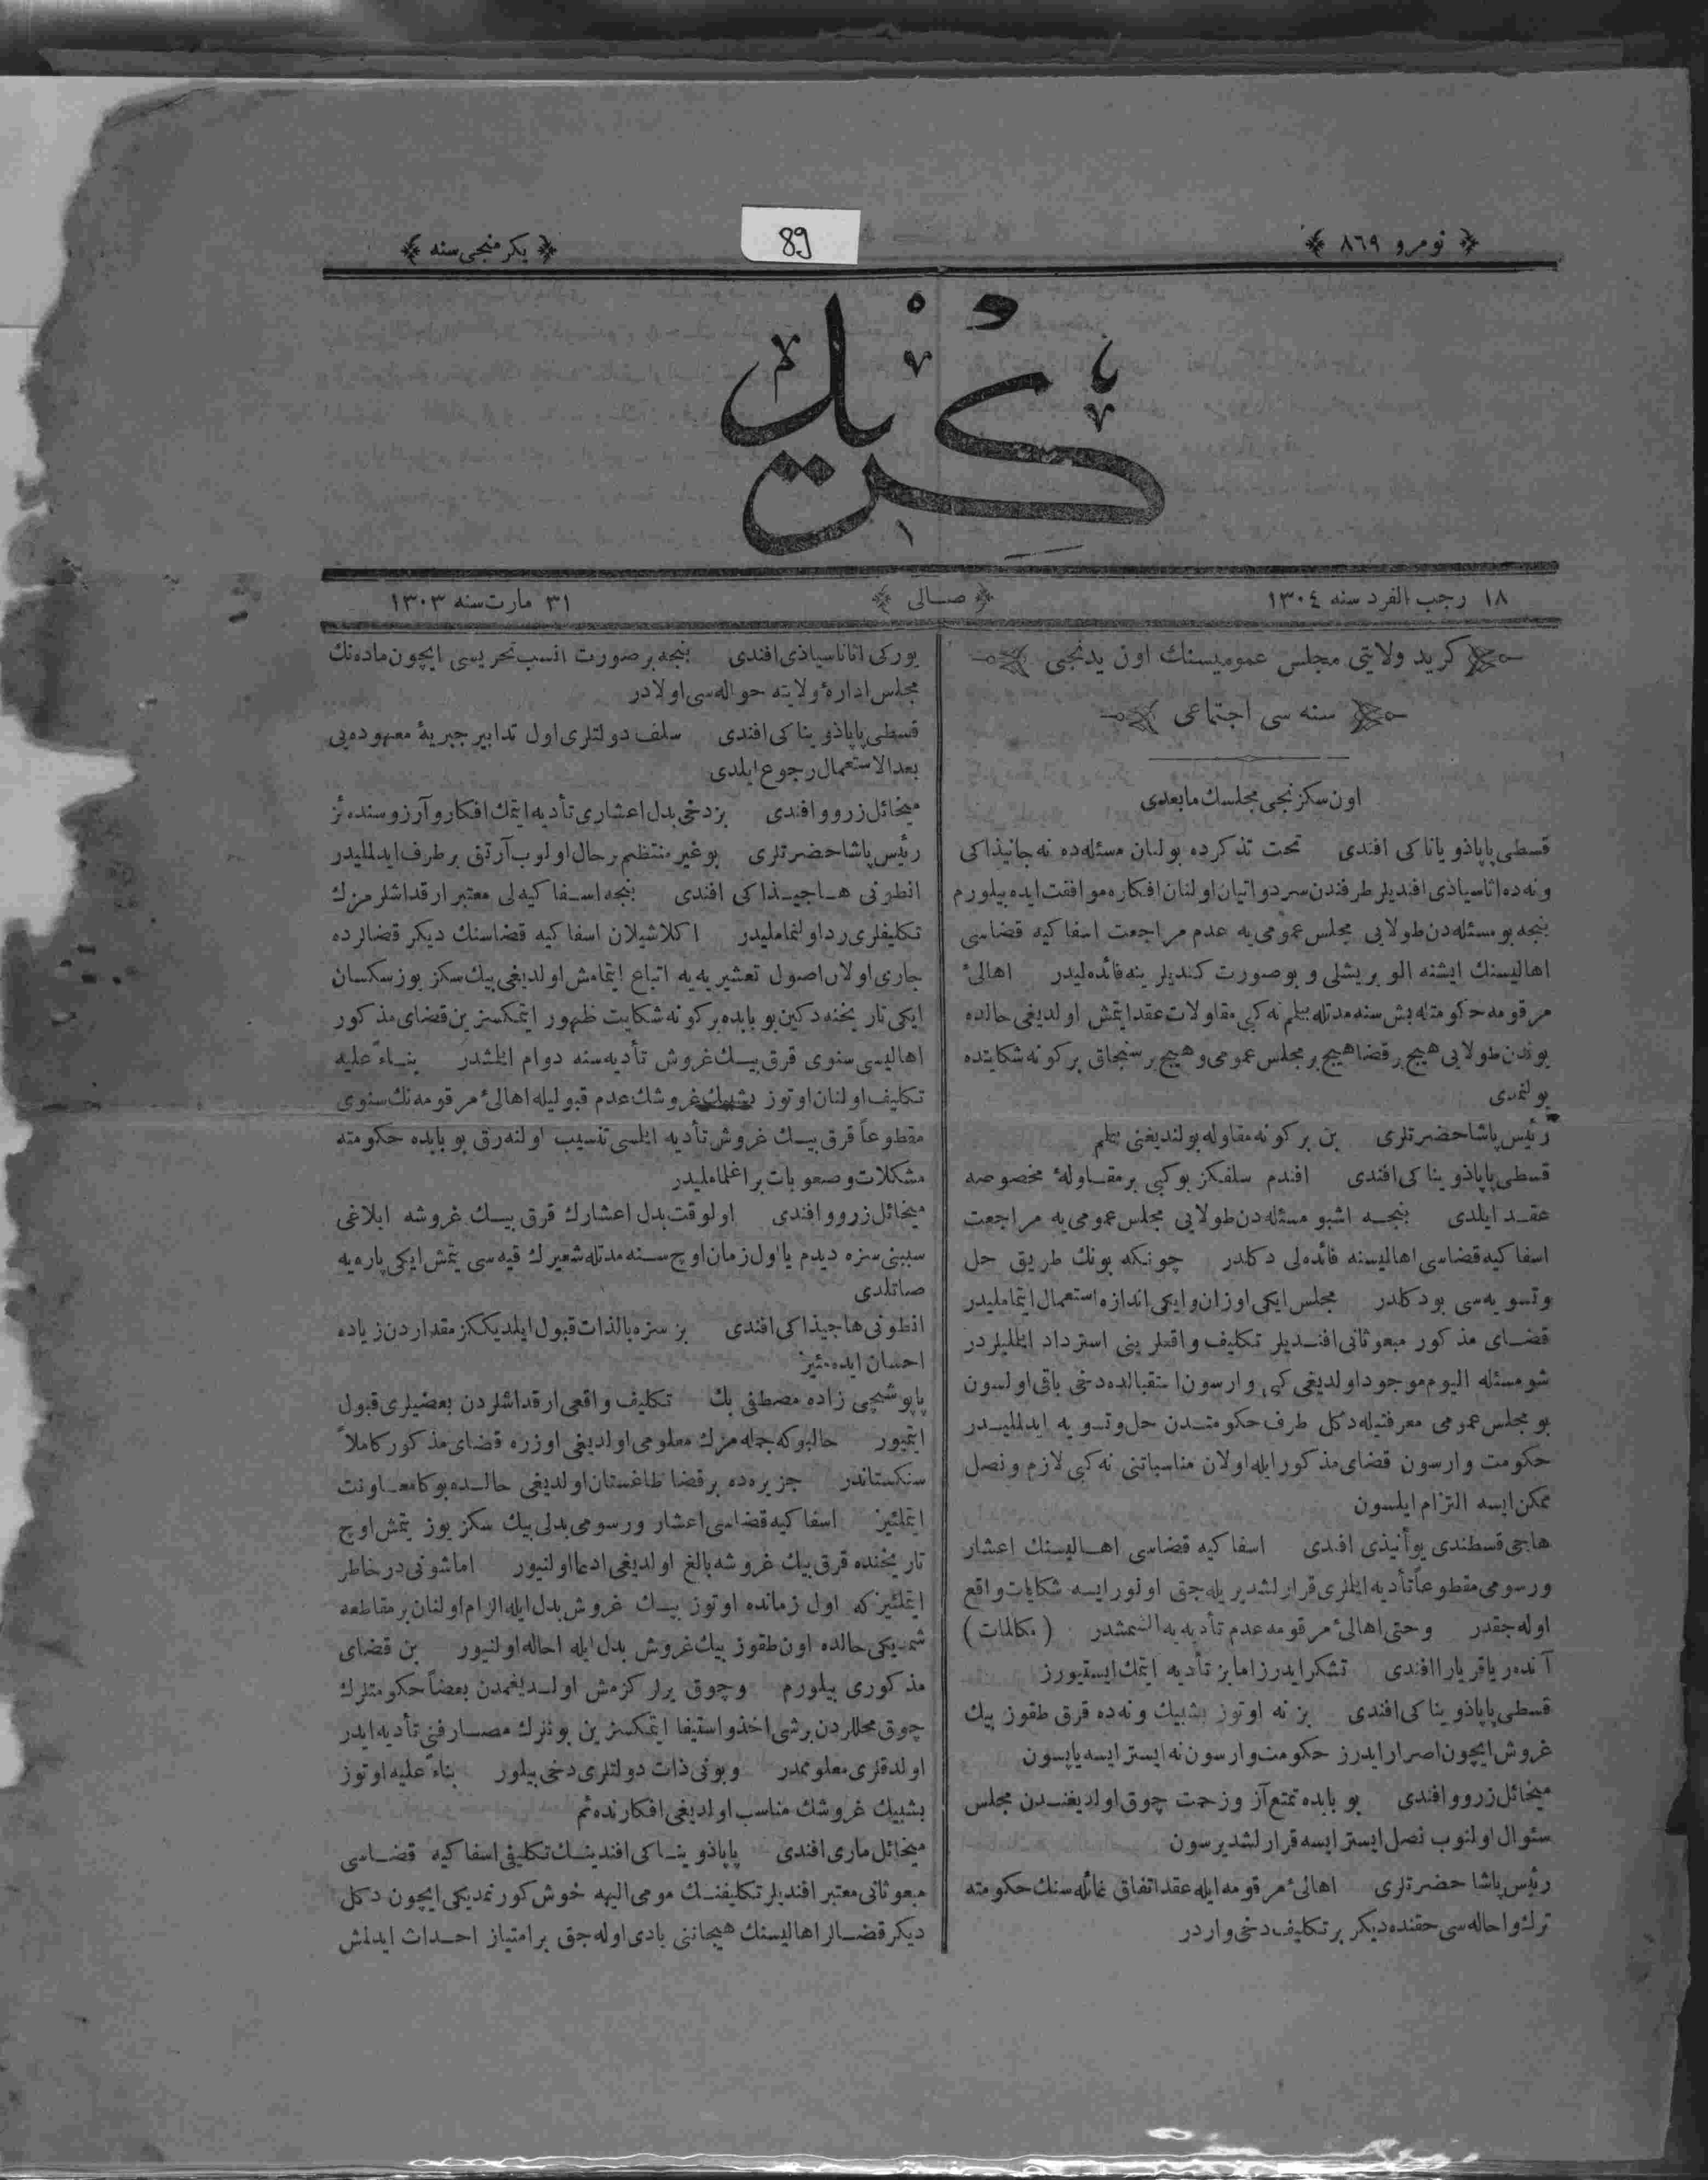 نومرو ٨٦٩
89
يكرمنجى سنه
كريد
١٨ رجب الفرد سنه ١٣٠٤
صالى
٣١ مارت سنه ١٣٠٣
كريد ولايتى مجلس عموميسنك اون يدنجى
سنه سى اجتماعى
اون سكزنجى مجلسك مابعدى
قسطى پاپاذو ياناكى افندى تحت تذكرده بولنان مسئله‌ده نه جانيذاكى
ونه‌ده اناسياذى افنديلر طرفندن سرد و اتيان اولنان افكاره موافقت ايده بيلورم
بنجه بو مسئله‌دن طولايى مجلس عمومى‌يه عدم مراجعت اسفاكيه قضاسى
اهاليسنك ايشنه الويريشلى و بو صورت كنديلرينه فائده‌ليدر اهالئ
مرقومه حكومتله بش سنه مدتله بيلم نه كبى مقاولات عقد ايتمش اولديغى حالده
بوندن طولايى هيچ بر قضا هيچ بر مجلس عمومى و هيچ بر سنجاق بر كونه شكايتده
بولنمدى
رئيس پاشا حضرتلرى بن بر كونه مقاوله بولنديغنى بيلم
قسطى پاپاذو يناكى افندى افندم سلفكز بو كبى بر مقاولهٔ مخصوصه
عقد ايلدى بنجه اشبو مسئله‌دن طولايى مجلس عمومى‌يه مراجعت
اسفاكيه قضاسى اهاليسنه فائده‌لى دكلدر چونكه بونك طريق حل
وتسويه‌سى بو دكلدر مجلس ايكى اوزان و ايكى اندازه استعمال ايتماملیدر
قضاى مذكور مبعوثانى افنديلر تكليف واقعلرينى استرداد ايتمليلردر
شو مسئله اليوم موجود اولديغى كبى وارسون استقبالده دخى باقى اولسون
بو مجلس عمومى معرفتيله دكل طرف حكومتدن حل وتسويه ايدلمليدر
حكومت وارسون قضاى مذكور ايله اولان مناسباتنى نه كبى لازم ونصل
ممكن ايسه التزام ايلسون
هاجى قسطندى يوأنيذى افندى اسفاكيه قضاسى اهاليسنك اعشار
ورسومى مقطوعاً تأديه ايتملرى قرارلشديريله‌جق اولور ايسه شكايات واقع
اوله‌جقدر وحتى اهالئ مرقومه عدم تأديه‌يه الشمشدر (مكالمات)
آندهر ياقريارا افندى تشكر ايدرز اما بز تأديه ايتمك ايستيورز
قسطى پاپاذو يناكى افندى بز نه اوتوز بشبيك ونه‌ده قرق طقوز بيك
غروش ايچون اصرار ايدرز حكومت وارسون نه ايستر ايسه ياپسون
ميخائل زروو افندى بو بابده تمتع آز وزحمت چوق اولديغندن مجلس
سئوال اولنوب نصل ايستر ايسه قرارلشديرسون
رئيس پاشا حضرتلرى اهالئ مرقومه ايله عقد اتفاق غائله‌سنك حكومته
ترك واحاله‌سى حقنده ديكر بر تكليف دخى واردر
يوركى اناناسياذى افندى بنجه بر صورت انسب تحريسى ايچون ماده‌نك
مجلس ادارهٔ ولايته حواله‌سى اولادر
قسطى پاپاذو يناكى افندى سلف دولتلرى اول تدابير جبريهٔ معهوده‌يى
بعد الاستعمال رجوع ايلدى
ميخائل زروو افندى بز دخى بدل اعشارى تأديه ايتمك افكار و آرزوسنده‌ئز
رئيس پاشا حضرتلرى بو غير منتظم رحال اولوب آرتق بر طرف ايدلمليدر
انطونى هاجيذاكى افندى بنجه اسفاكيه‌لى معتبر ارقداشلرمزك
تكليفلرى رد اولنماملیدر اكلاشيلان اسفاكيه قضاسنك ديكر قضالرده
جارى اولان اصول تعشيريه‌يه اتباع ايتمامش اولديغى بيك سكز يوز سكسان
ايكى تاريخنه دكين بو بابده بر كونه شكايت ظهور ايتمكسزين قضاى مذكور
اهاليسى سنوى قرق بيك غروش تأديه‌سنه دوام ايتمشدر بناءً عليه
تكليف اولنان اوتوز بشبيك غروشك عدم قبوليله اهالئ مرقومه‌نك سنوى
مقطوعاً قرق بيك غروش تأديه ايتلمسى تنسيب اولنه‌رق بو بابده حكومته
مشكلات وصعوبات براغلماملیدر
ميخائل زروو افندى اولوقت بدل اعشارك قرق بيك غروشه ابلاغى
سببنى سزه ديدم يا اول زمان اوچ سنه مدتله شعيرك قيه‌سى يتمش ايكى پاره‌يه
صاتلدى
انطونى هاجيذاكى افندى بز سزه بالذات قبول ايلديككز مقداردن زياده
احسان ايده‌مئيز
پاپوشجى زاده مصطفى بك تكليف واقعى ارقداشلردن بعضيلرى قبول
ايتميور حالبوكه جمله‌مزك معلومى اولديغى اوزره قضاى مذكور كاملاً
سنكستاندر جزيره‌ده بر قضا طاغستان اولديغى حالده بوكا معاونت
ايتمليز اسفاكيه قضاسى اعشار ورسومى بدلى بيك سكز يوز يتمش اوچ
تاريخنده قرق بيك غروشه بالغ اولديغى ادعا اولنيور اما شونى درخاطر
ايتمليز كه اول زمانده اوتوز بيك غروش بدل ايله الزام اولنان بر مقاطعه
شمديكى حالده اون طقوز بيك غروش بدل ايله احاله اولنيور بن قضاى
مذكورى بيلورم وچوق يرلر كزمش اولديغمدن بعضاً حكومتلرك
چوق محللردن بر شى اخذ و استيفا ايتمكسزين بونلرك مصارفنى تأديه ايدر
اولدقلرى معلوممدر وبونى ذات دولتلرى دخى بيلور بناءً عليه اوتوز
بشبيك غروشك مناسب اولديغى افكارنده‌ئم
ميخائل مارى افندى پاپاذو يناكى افندينك تكليفى اسفاكيه قضاسى
مبعوثانى معتبر افنديلر تكليفنك مومى اليهه خوش كورنمديكى ايچون دكل
ديكر قضالر اهاليسنك هيجاننى بادى اوله‌جق بر امتياز احداث ايدلمش